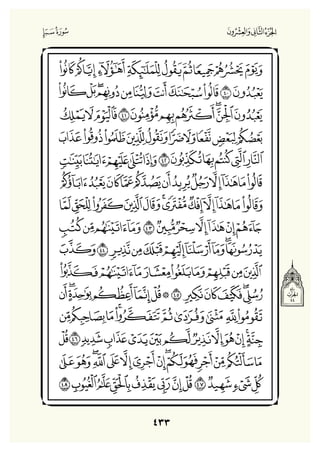 الجُزْءُ الثَّانِي وَالعِشْرُونَ
سُورَةُ سَبَإٍ
وَيَوْمَ يَحْشُرُهُمْ جَمِيعًا ثُمَّ يَقُولُ لِلْمَلَٰٓئِكَةِ أَهَٰٓؤُلَآءِ إِيَّاكُمْ كَانُوا۟
يَعْبُدُونَ ٤٠ قَالُوا۟ سُبْحَٰنَكَ أَنتَ وَلِيُّنَا مِن دُونِهِم ۖ بَلْ كَانُوا۟
يَعْبُدُونَ ٱلْجِنَّ ۖ أَكْثَرُهُم بِهِم مُّؤْمِنُونَ ٤١ فَٱلْيَوْمَ لَا يَمْلِكُ
بَعْضُكُمْ لِبَعْضٍ نَّفْعًا وَلَا ضَرًّا وَنَقُولُ لِلَّذِينَ ظَلَمُوا۟ ذُوقُوا۟ عَذَابَ
ٱلنَّارِ ٱلَّتِى كُنتُم بِهَا تُكَذِّبُونَ ٤٢ وَإِذَا تُتْلَىٰ عَلَيْهِمْ ءَايَٰتُنَا بَيِّنَٰتٍ
قَالُوا۟ مَا هَٰذَآ إِلَّا رَجُلٌ يُرِيدُ أَن يَصُدَّكُمْ عَمَّا كَانَ يَعْبُدُ ءَابَآؤُكُمْ
وَقَالُوا۟ مَا هَٰذَآ إِلَّآ إِفْكٌ مُّفْتَرًى ۚ وَقَالَ ٱلَّذِينَ كَفَرُوا۟ لِلْحَقِّ لَمَّا
جَآءَهُمْ إِنْ هَٰذَآ إِلَّا سِحْرٌ مُّبِينٌ ٤٣ وَمَآ ءَاتَيْنَٰهُم مِّن كُتُبٍ
يَدْرُسُونَهَا ۖ وَمَآ أَرْسَلْنَآ إِلَيْهِمْ قَبْلَكَ مِن نَّذِيرٍ ٤٤ وَكَذَّبَ
ٱلَّذِينَ مِن قَبْلِهِمْ وَمَا بَلَغُوا۟ مِعْشَارَ مَآ ءَاتَيْنَٰهُمْ فَكَذَّبُوا۟
رُسُلِى ۖ فَكَيْفَ كَانَ نَكِيرِ ٤٥ ۞ قُلْ إِنَّمَآ أَعِظُكُم بِوَٰحِدَةٍ ۖ أَن
تَقُومُوا۟ لِلَّهِ مَثْنَىٰ وَفُرَٰدَىٰ ثُمَّ تَتَفَكَّرُوا۟ ۚ مَا بِصَاحِبِكُم مِّن
جِنَّةٍ ۚ إِنْ هُوَ إِلَّا نَذِيرٌ لَّكُم بَيْنَ يَدَىْ عَذَابٍ شَدِيدٍ ٤٦ قُلْ
مَا سَأَلْتُكُم مِّنْ أَجْرٍ فَهُوَ لَكُمْ ۖ إِنْ أَجْرِىَ إِلَّا عَلَى ٱللَّهِ ۖ وَهُوَ عَلَىٰ
كُلِّ شَىْءٍ شَهِيدٌ ٤٧ قُلْ إِنَّ رَبِّى يَقْذِفُ بِٱلْحَقِّ عَلَّٰمُ ٱلْغُيُوبِ ٤٨
الحزب
٤٤
٤٣٣